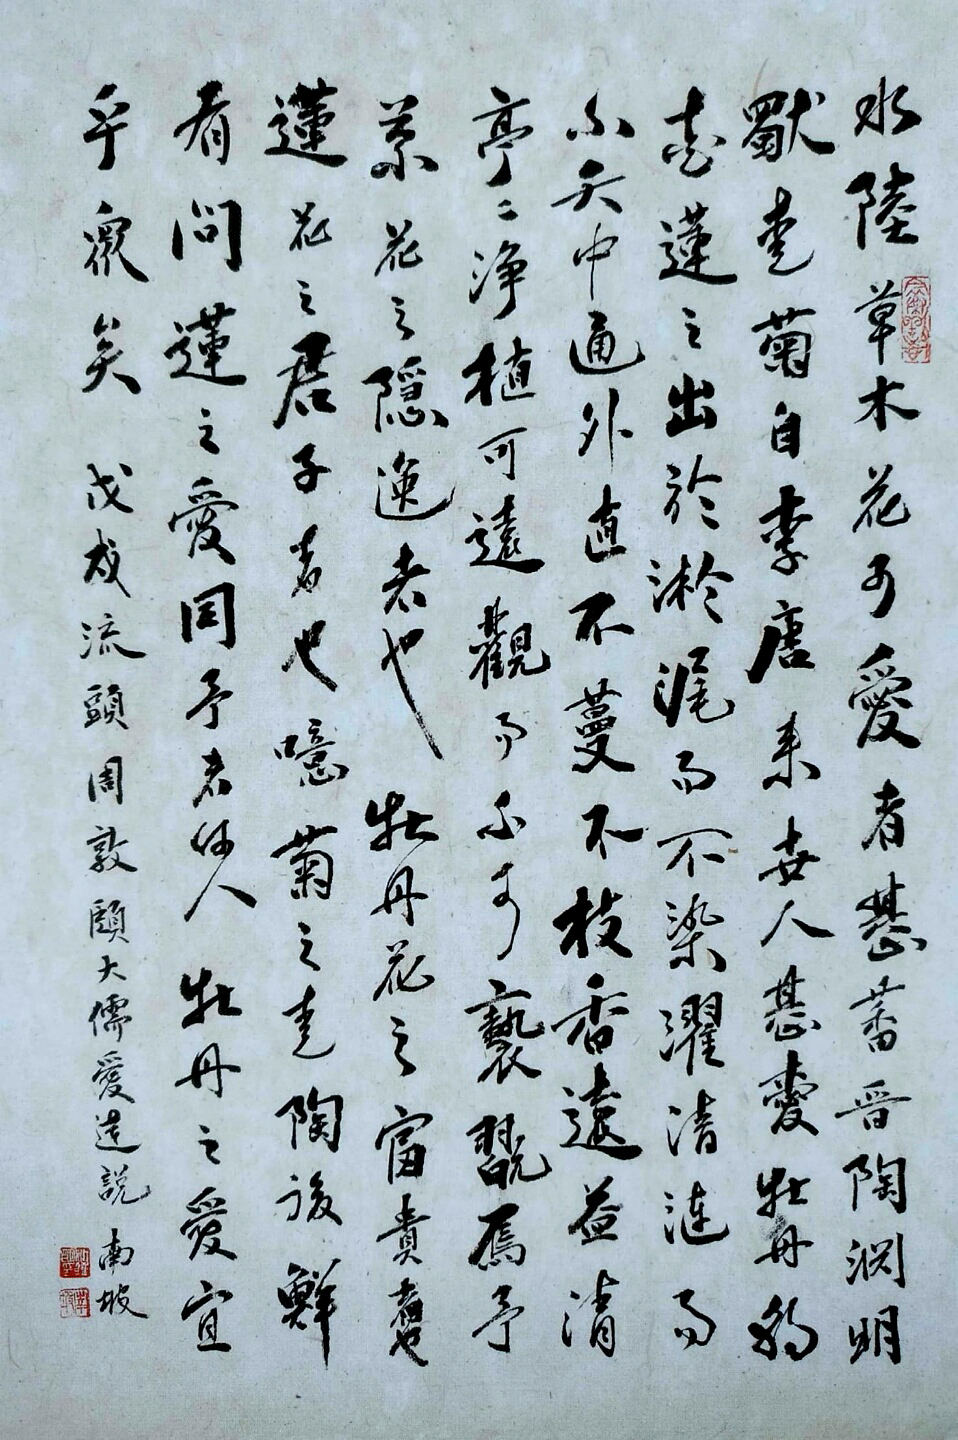 水陸草木花可愛者甚蕃晋陶渊明
獨爱菊自李唐来世人甚愛牡丹独
爱蓮之出於淤泥而不染濯清漣而
不夭中通外直不蔓不枝香遠益清
亭〻净植可遠觀而不可褻翫焉予
菊花之隱逸者也牡丹花之富貴者也
蓮花之君子者也噫菊之爱陶後鮮
有問蓮之愛同予者何人牡丹之愛宜
乎衆矣 戊戌流頭周敦頤大儒愛蓮説 南坡